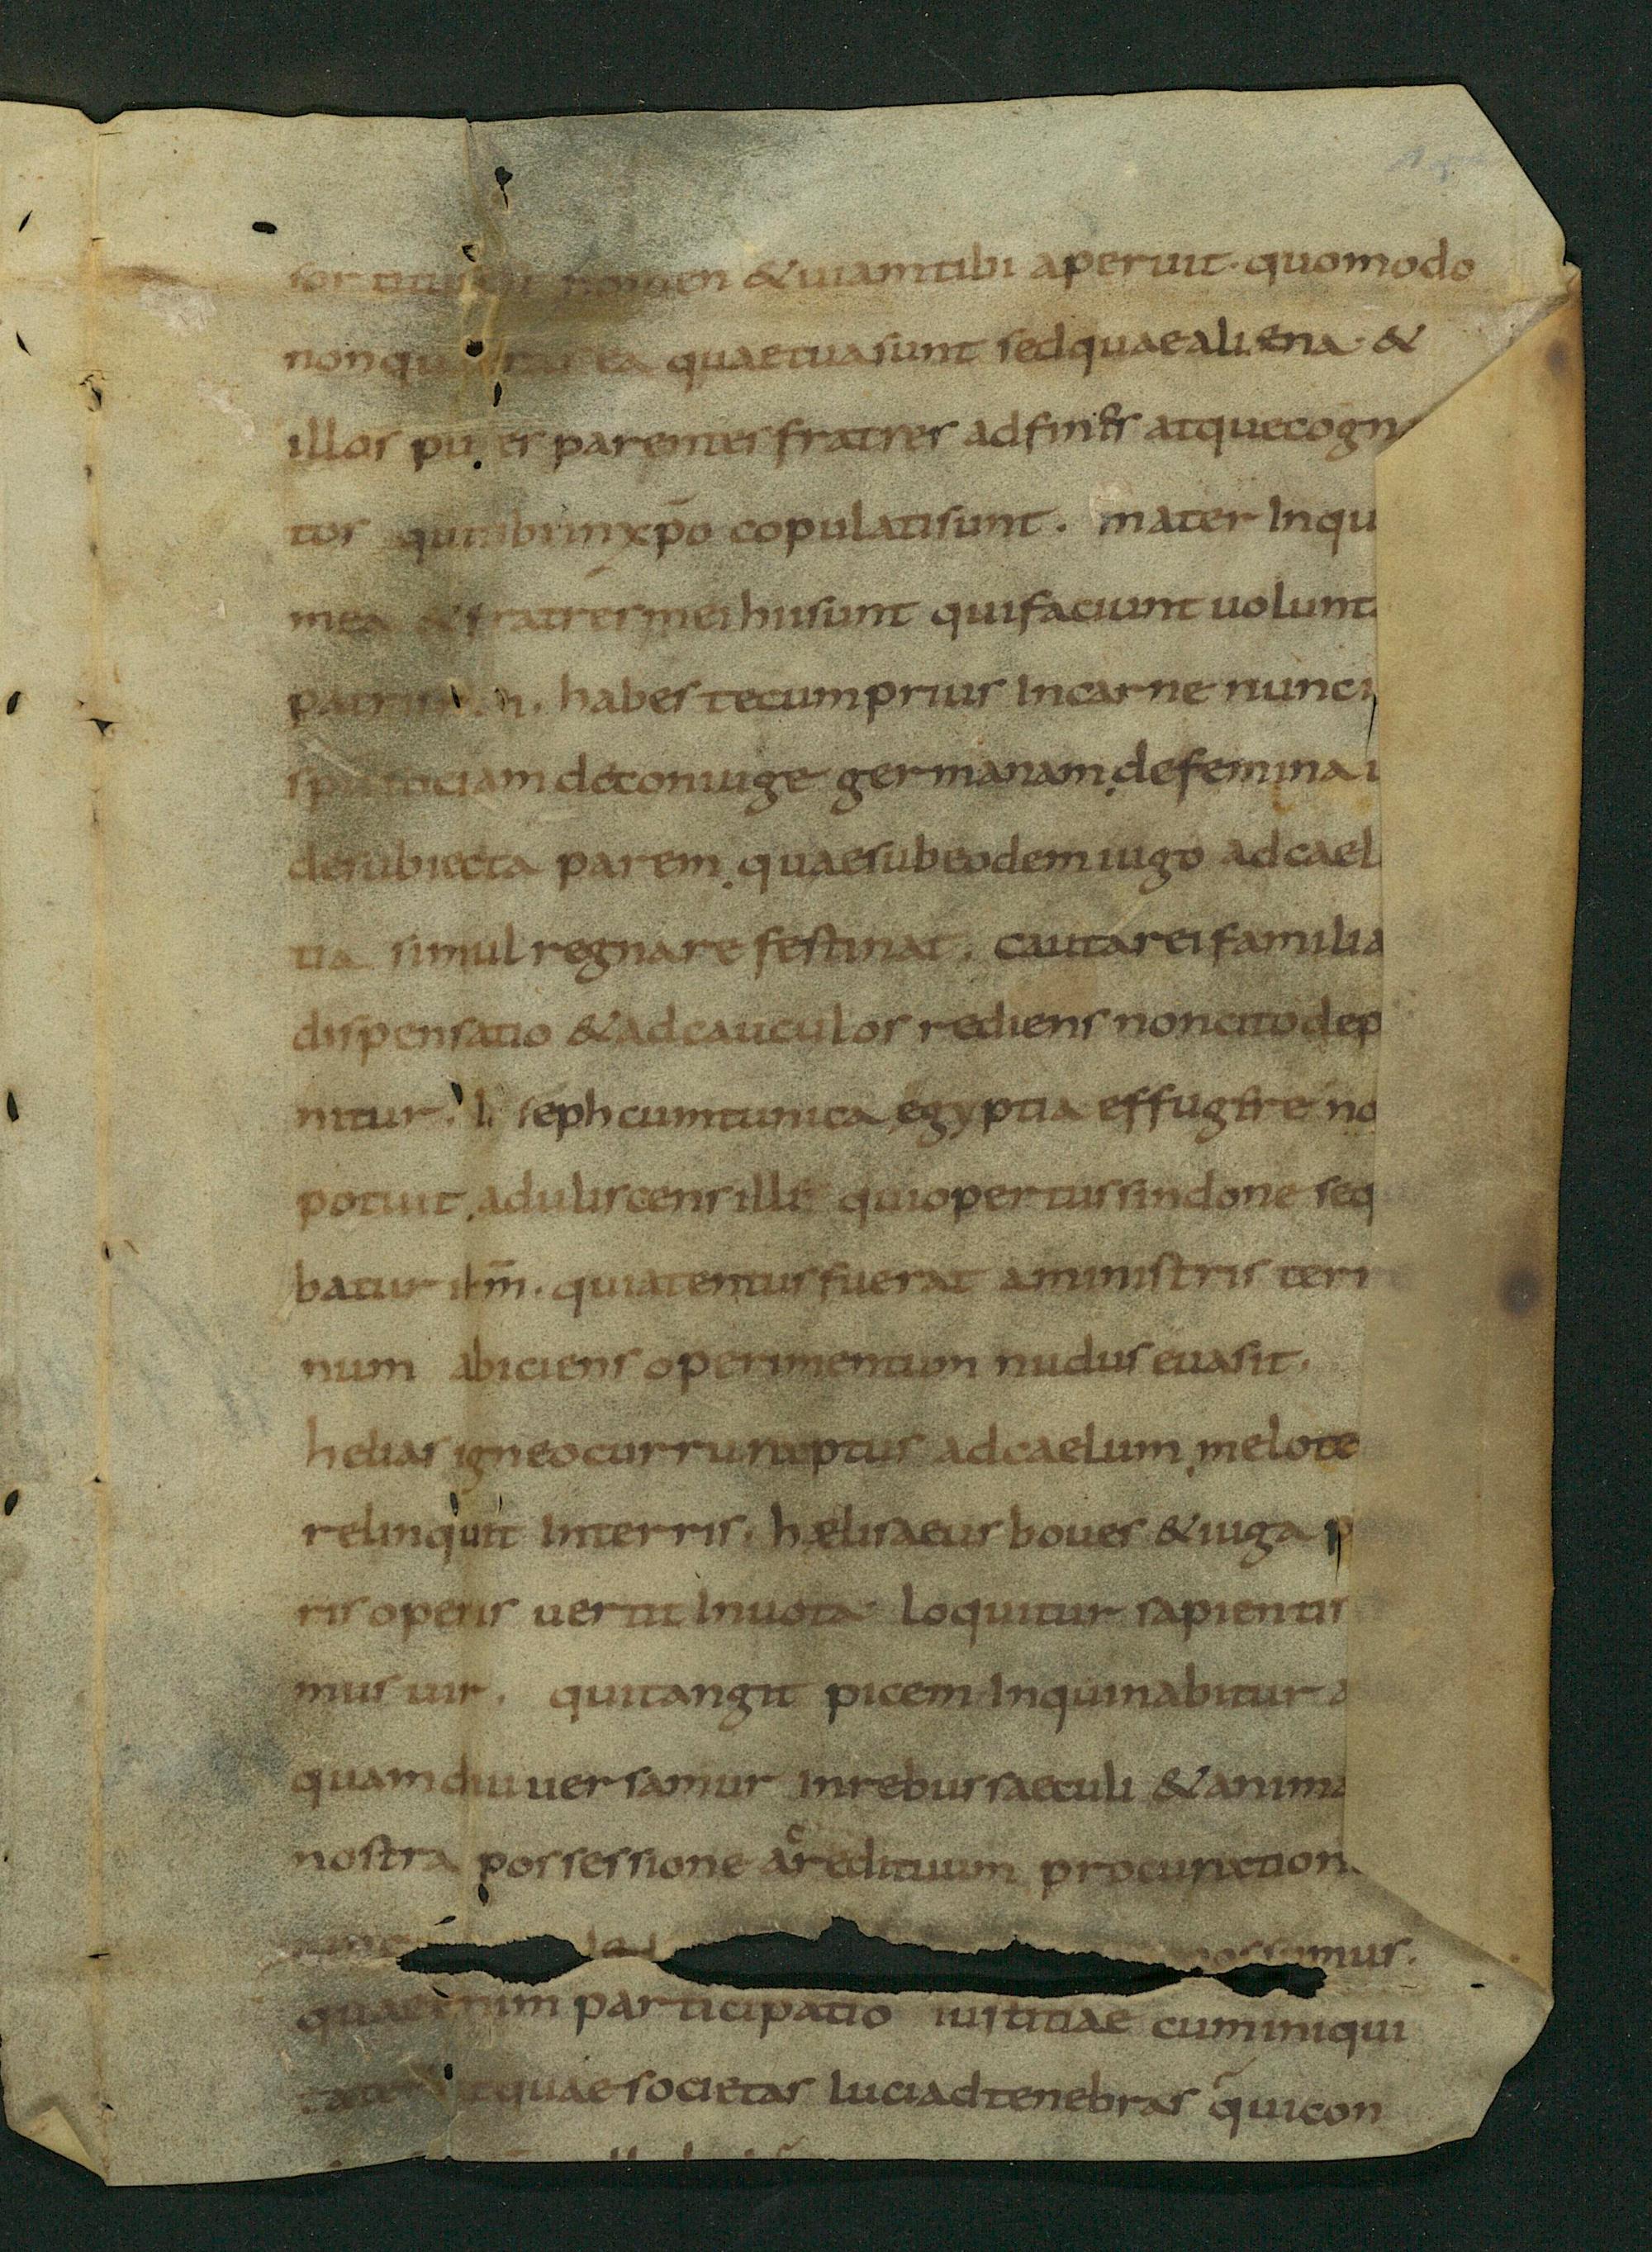 sortitus est nomen & uiam tibi aperuit· quomodo
non quaeras ea quae tua sunt sed quae aliena· &
illos pu es parentes fratres adfines atque cogn
tos qui tibi in xp̄o copulati sunt. mater Inqu
mea & fratres mei hii sunt qui faciunt uolunt
patris habes tecum prius In carne nunc i
spu sociam de coniuge germanam, de femina u
de subiecta parem, quae sub eodem iugo ad cael
tia simul regnare festinat. cauta rei familia
dispensatio & ad cauculos rediens non cito dep
nitur. seph cum tunica egyptia effugere no
potuit, aduliscens ille qui opertus sindone seq
batur ihm̄. quia tentus fuerat a ministris terr
num abiciens operimentum nudus euasit.
helias igneo curru raptus ad caelum, melote
relinquit In terris. helisaeus boues & iuga p
ris operis uertit In uota· loquitur sapientis
mus uir. qui tangit picem Inquinabitur a
quamdiu uersamur In rebus saeculi & anima
nostra possessione ac redituum procuratione
possumus.
quae enim participatio iustitiae cum iniqui
tate quae societas luci ad tenebras qui con